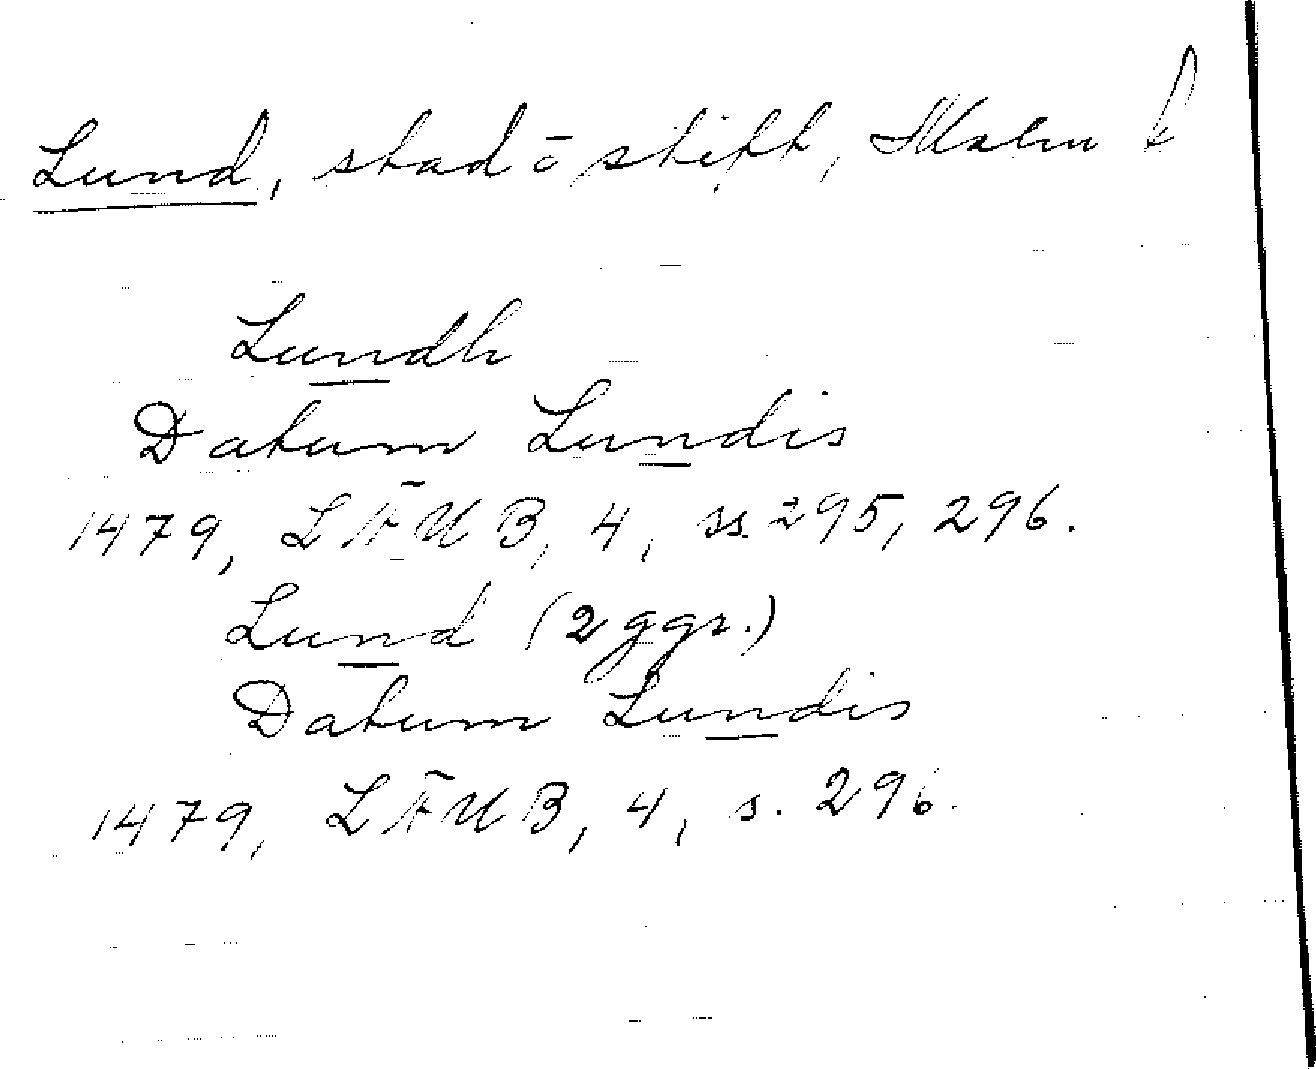 Lund, stad o stift, Malm l
Lundh
Datum Lundis
1479, LÄUB, 4, ss. 295, 296.
Lund (2 ggr.)
Datum Lundis
1479, LÄUB, 4, s. 296.